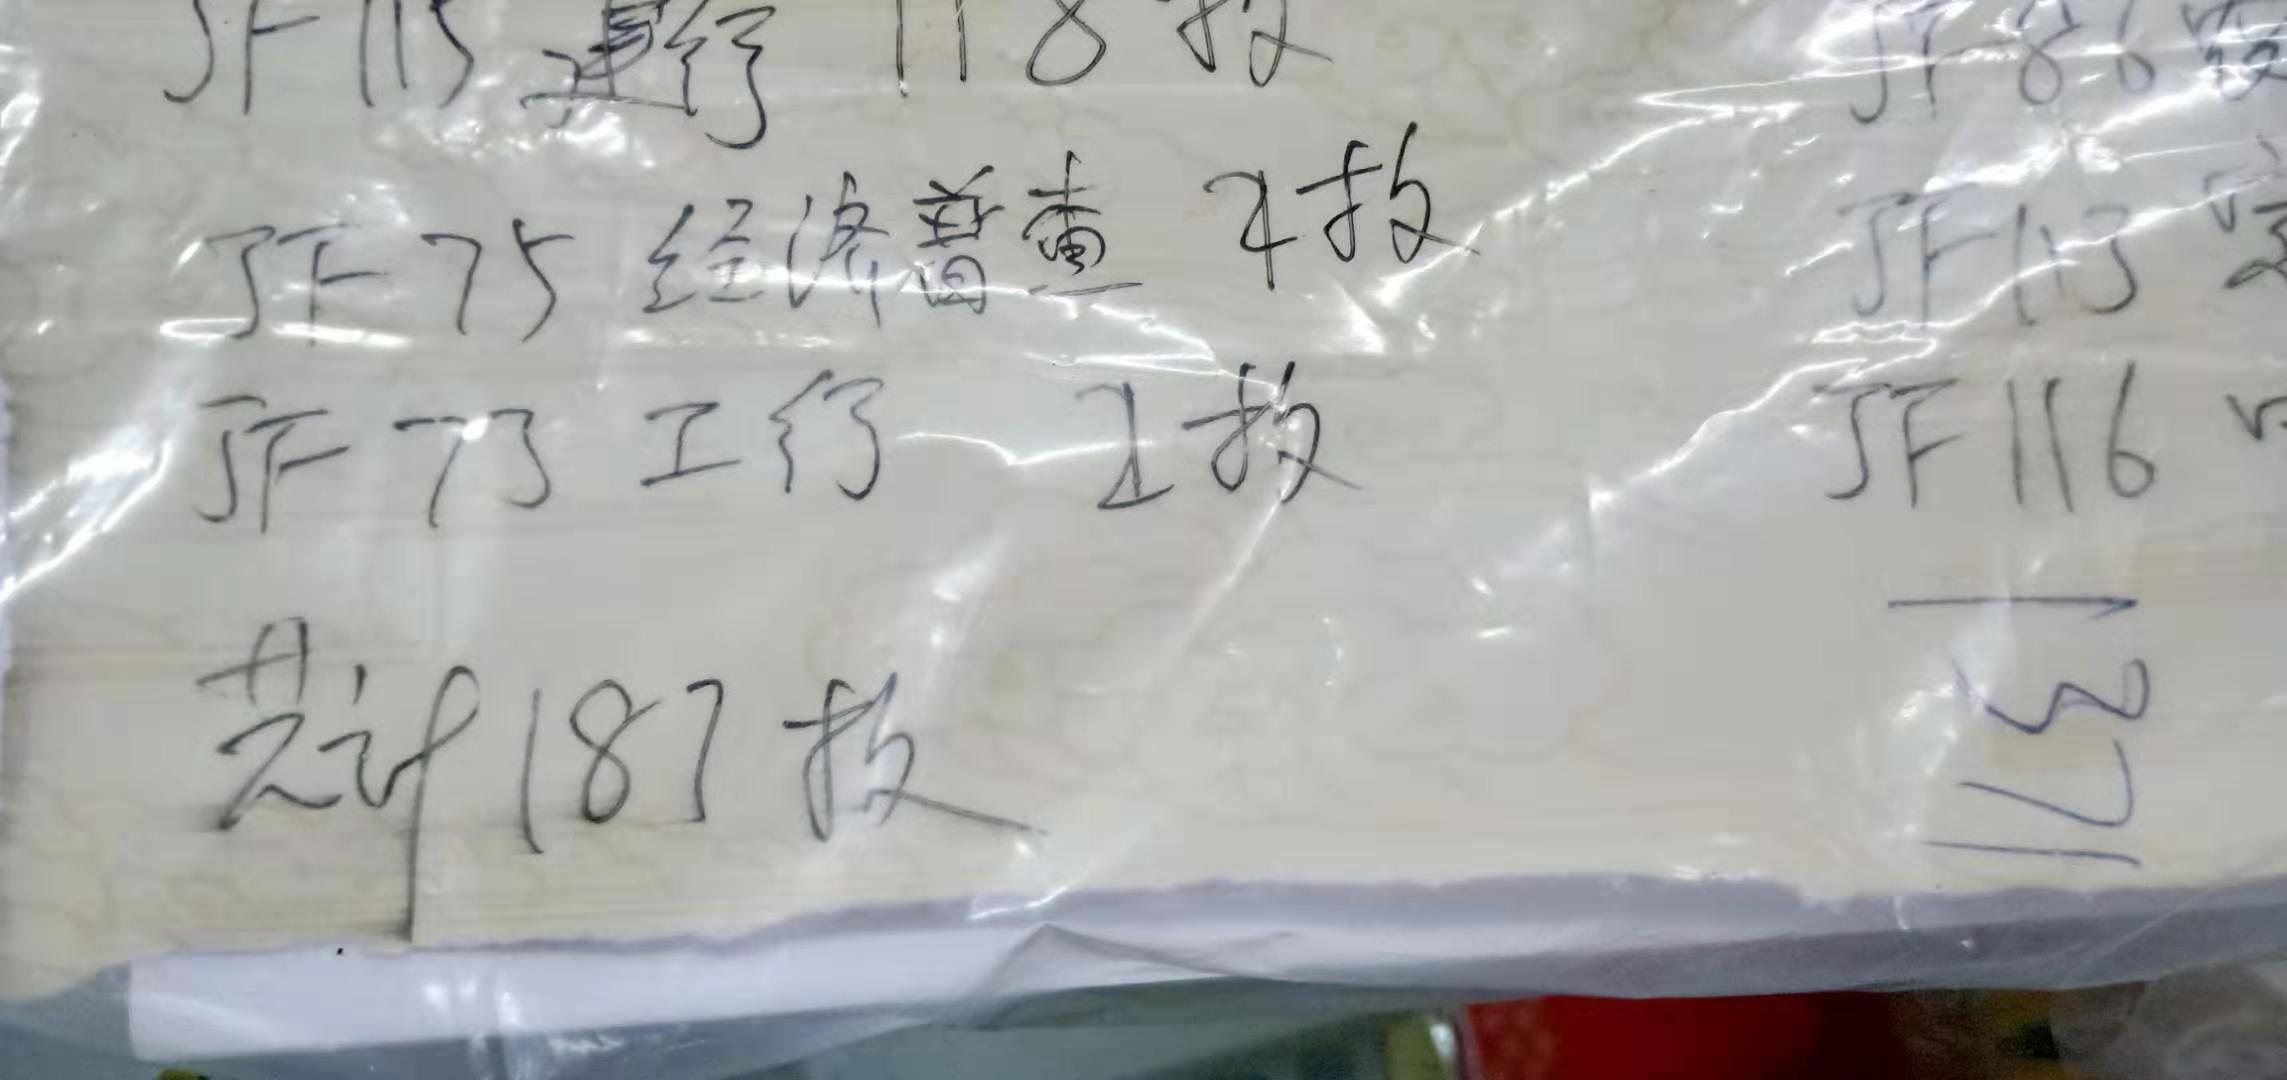 JF115 建行 118枚
JF75 经济普查 2枚
JF73 工行 2枚
共计187枚
JF86
JF113
JF116